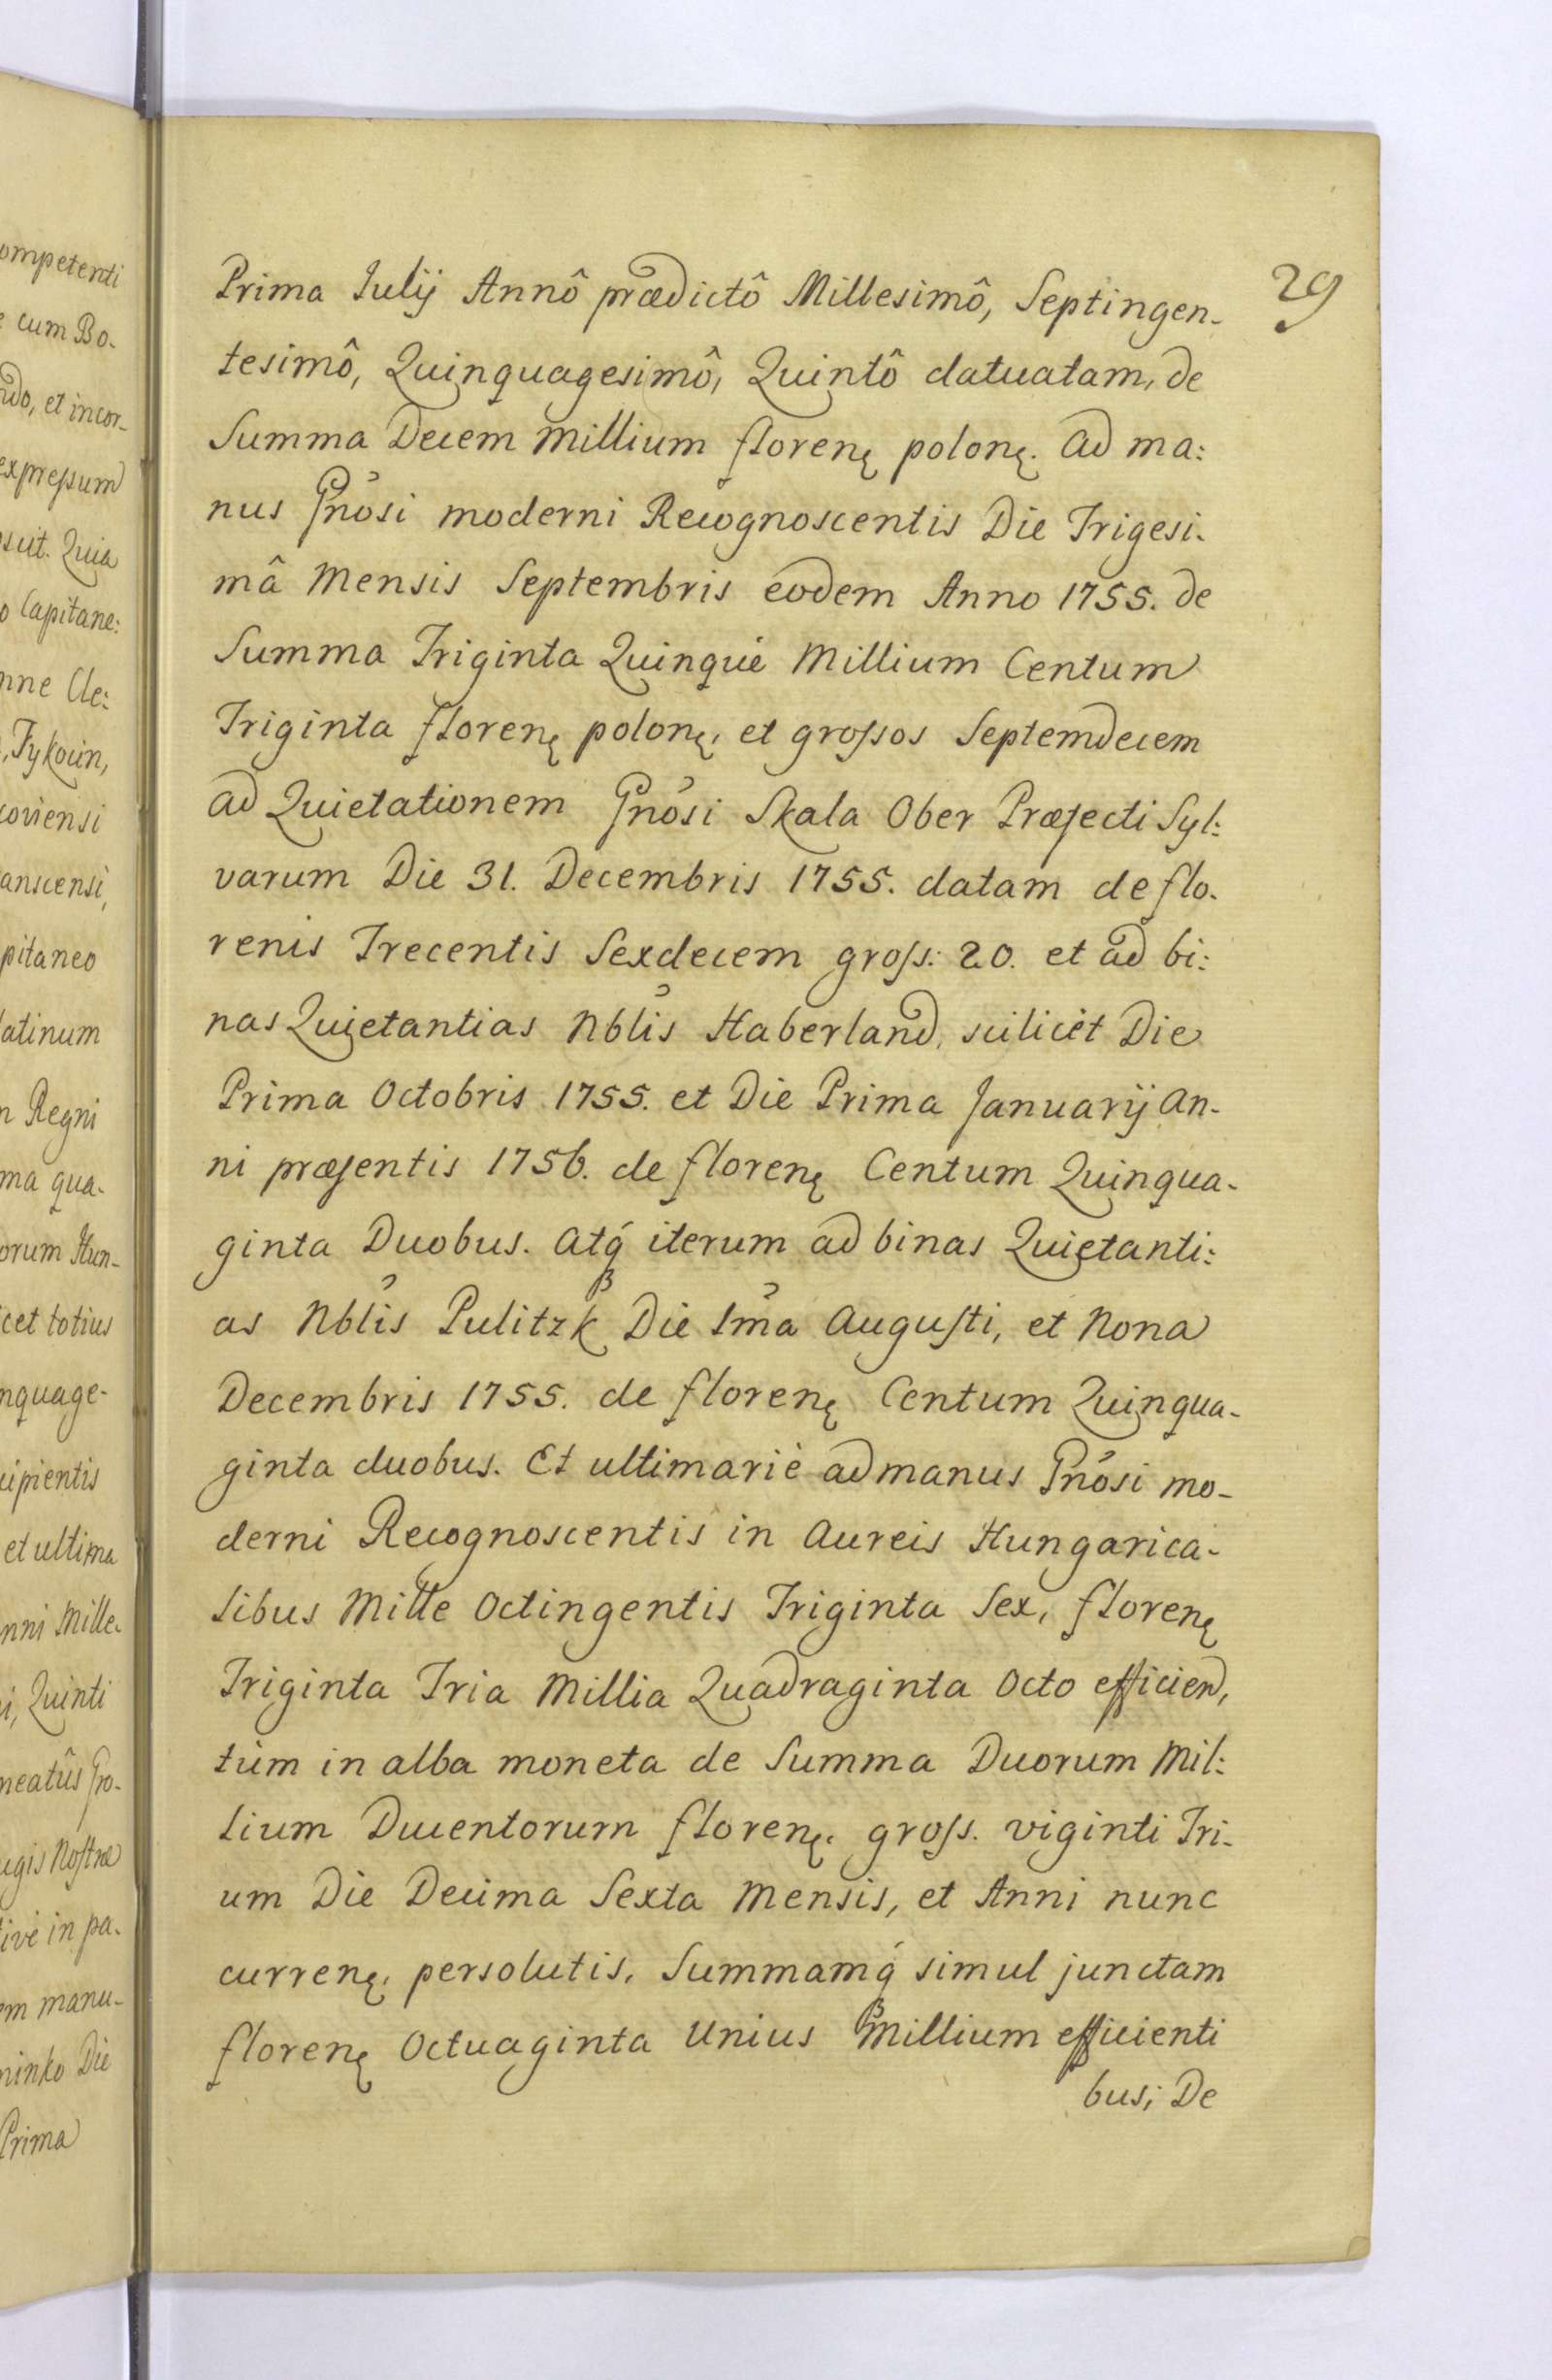 ompetenti
e cum Bo-
ndo, et incor-
expressum
oscit. Quia
o Capitane:
nne Cle:
, Tykocin,
coviensi
anscensi,
pitaneo
latinum
n Regni
ma qua-
orum Hun-
icet totius
nquage-
cipientis
et ultima
nni Mille-
i, Quinti
meatûs Gro-
egis Nostræ
tivè in pa-
em manu-
minko Die
Prima
29
Prima Julij Annô prædictô Millesimô, Septingen-
tesimô, Quinquagesimô, Quintô datuatam, de
Summa Decem Millium florenę polonę. ad ma:
nus Gnosi moderni Recognoscentis Die Trigesi-
mâ Mensis Septembris eodem Anno 1755. de
Summa Triginta Quinquè Millium Centum
Triginta florenę polonę, et grossos Septemdecem
ad Quietationem Gnosi Skala Ober Præfecti Syl:
varum Die 31. Decembris 1755. datam de flo-
renis Trecentis Sexdecem gross: 20. et ad bi:
nas Quietantias Nblis Haberland, scilicèt Die
Prima Octobris 1755. et Die Prima Januarij An-
ni præsentis 1756. de florenę Centum Quinqua-
ginta Duobus. Atq́ iterum ad binas Quietanti:
as Nblis Pulitzk Die 1ma Augusti, et Nona
Decembris 1755. de florenę Centum Quinqua-
ginta duobus. Et ultimariè ad manus Gnosi mo-
derni Recognoscentis in Aureis Hungarica-
libus Mille Octingentis Triginta Sex, florenę
Triginta Tria Millia Quadraginta Octo efficien,
tùm in alba moneta de Summa Duorum Mil:
lium Ducentorum florenę. gross. viginti Tri-
um Die Decima Sexta Mensis, et Anni nunc
currenę. persolutis, Summamq́ simul junctam
florenę Octuaginta Unius Millium efficienti
bus; De